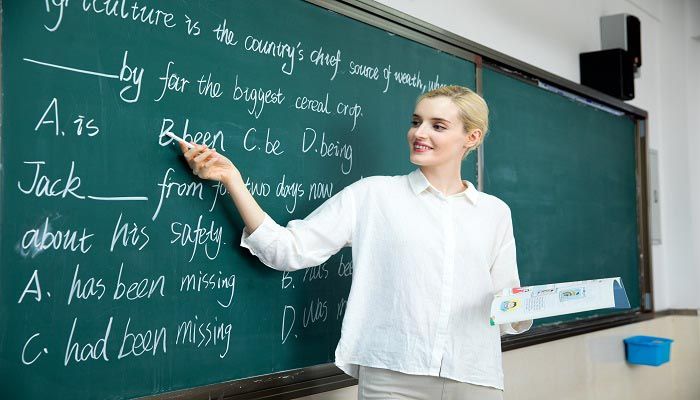 Agriculture is the country's chief source of wealth, wh
____ by far the biggest cereal crop.
A. is B. been C. be D. being
Jack ____ from for two days now
about his safety.
A. has been missing B. has been
C. had been missing D. was